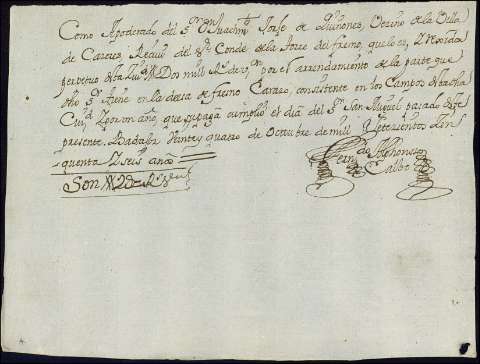 Como Apoderado del Sr. Dn. Joachn. Josfe de Quiñones, Vecino de la Villa
de Cazeres, Recivi del Sr. Conde de la Torre del fresno, que lo es, Y rexidor
perpetuo Dos mill Rs. de von. por el arrendamiento de la parte que
dho Sr. tiene en la deesa de fresno Carazo, consistente en los Campos de dha
Ciud. Y por un año, que su paga cumplio el dia del Sr. San Miguel pasado deste
presente. Badajoz Veinte y quatro de Octubre de mill Y Setezientos Zin
quenta Y seis años
Son 2 Rs. Vn.
Fern.do Alphonsso
de Calbo